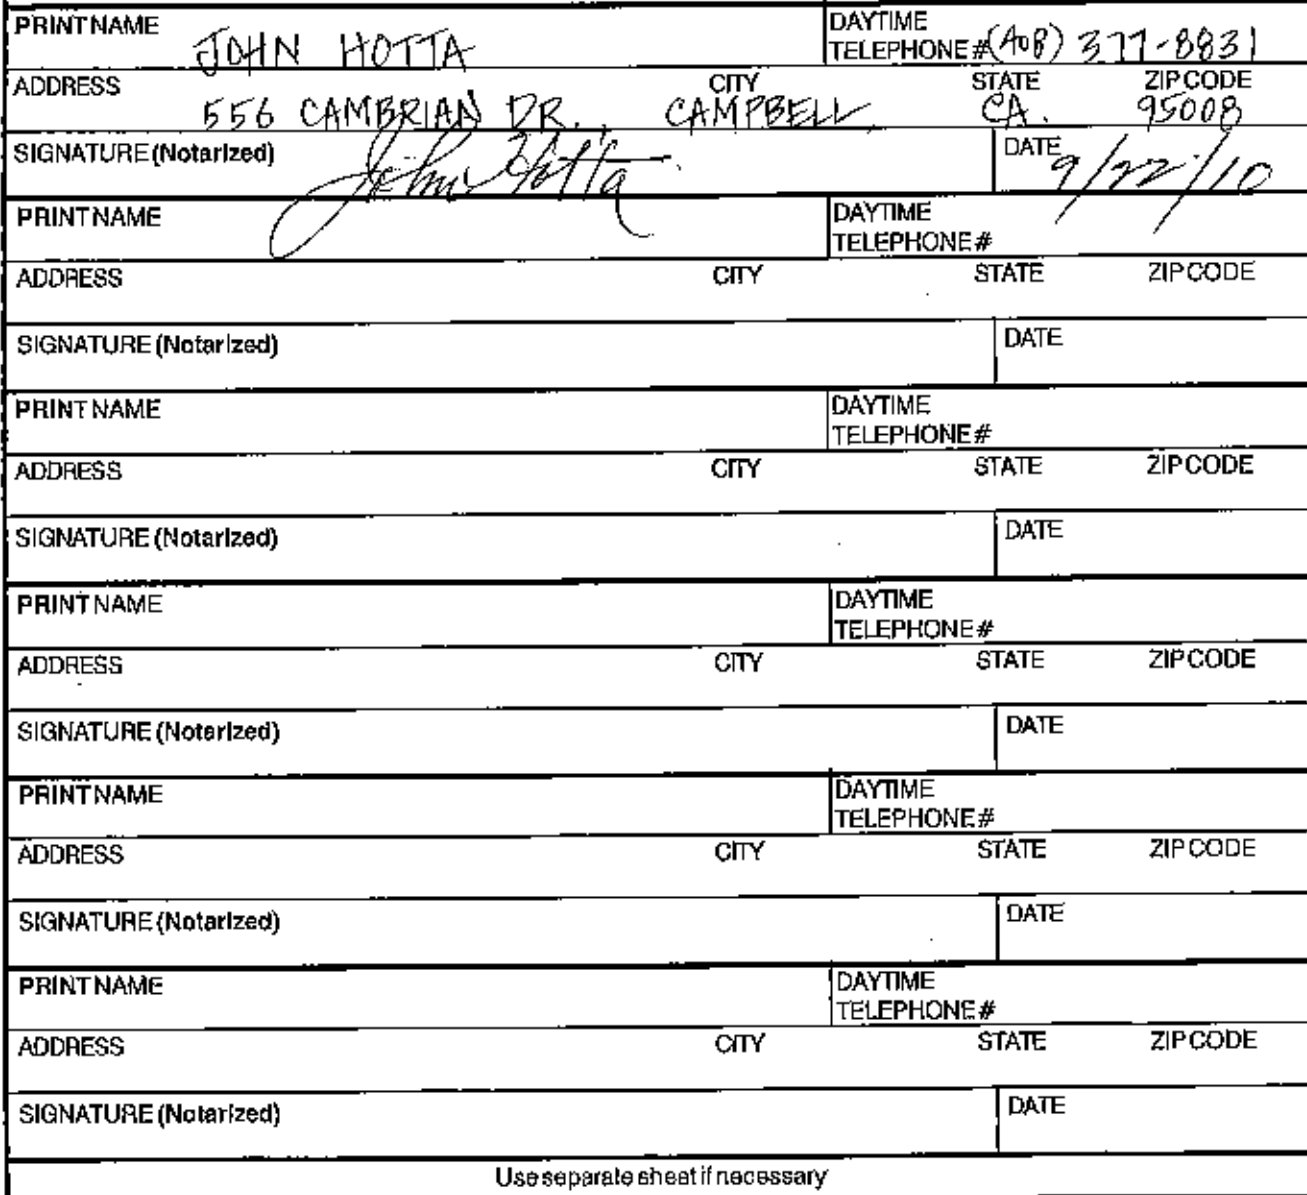 PRINT NAME JOHN HOTTA DAYTIME TELEPHONE # (408) 377-8831
ADDRESS CITY STATE ZIP CODE
556 CAMBRIAN DR., CAMPBELL CA. 95008
SIGNATURE (Notarized) John Hotta DATE 9/22/10
PRINT NAME DAYTIME TELEPHONE #
ADDRESS CITY STATE ZIP CODE
SIGNATURE (Notarized) DATE
PRINT NAME DAYTIME TELEPHONE #
ADDRESS CITY STATE ZIP CODE
SIGNATURE (Notarized) DATE
PRINT NAME DAYTIME TELEPHONE #
ADDRESS CITY STATE ZIP CODE
SIGNATURE (Notarized) DATE
PRINT NAME DAYTIME TELEPHONE #
ADDRESS CITY STATE ZIP CODE
SIGNATURE (Notarized) DATE
PRINT NAME DAYTIME TELEPHONE #
ADDRESS CITY STATE ZIP CODE
SIGNATURE (Notarized) DATE
Use separate sheet if necessary